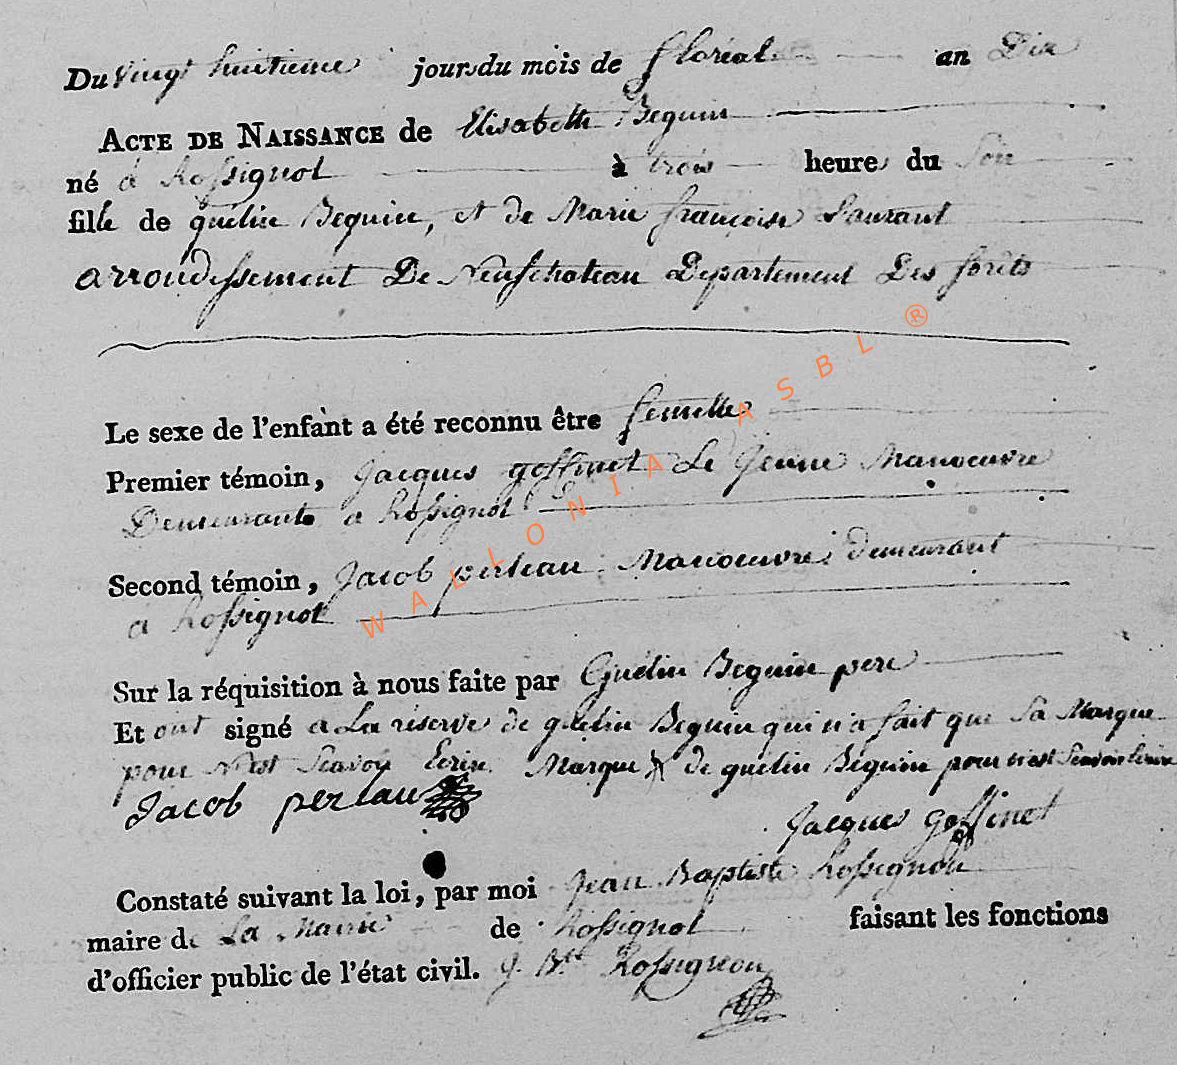 Du vingt huitieme jours du mois de floréal an Dix
ACTE DE NAISSANCE de Elisabeth Beguin
né à Rossignol à trois heures du Soir
fille de guélin Beguin, et de Marie françoise Laurant
arrondissement De Neufchateau Departement Des forêts
Le sexe de l'enfant a été reconnu être femelle
Premier témoin, Jacques goffinet Le Jeune Manoeuvre
Demeurant a Rossignol
Second témoin, Jacob perleau Manoeuvre demeurant
a Rossignol
Sur la réquisition à nous faite par Guélin Beguin pere
Et ont signé a La réserve de guélin Beguin qui n'a fait que Sa Marque
pour n'est Scavoir Ecrire Marque de guélin Beguin pour n'est Scavoir Ecrire
Jacob perlau
Jacques goffinet
Constaté suivant la loi, par moi Jean Baptiste Rossignon
maire de La Mairie de Rossignol faisant les fonctions
d'officier public de l'état civil. J. Bte Rossignon
WALLONIA ASBL ®